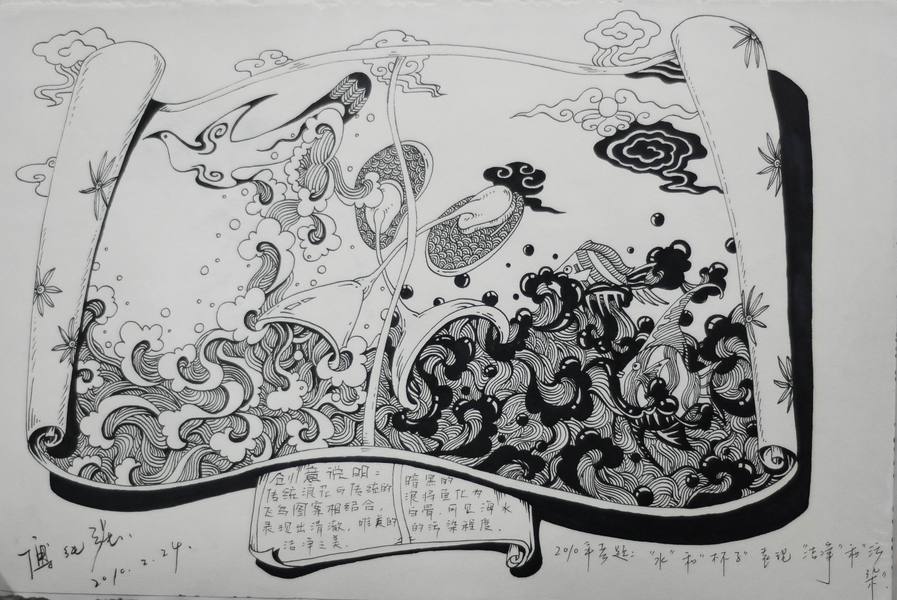 创意说明:
传统浪花与传统的
飞鸟图案相结合,
表现出清澈、唯美的
洁净之美.
暗黑的
浪将鱼化为
白骨,可见海水
的污染程度.
2010.2.24.
2010年考题: "水"和"杯子"表现"洁净"和"污
染".